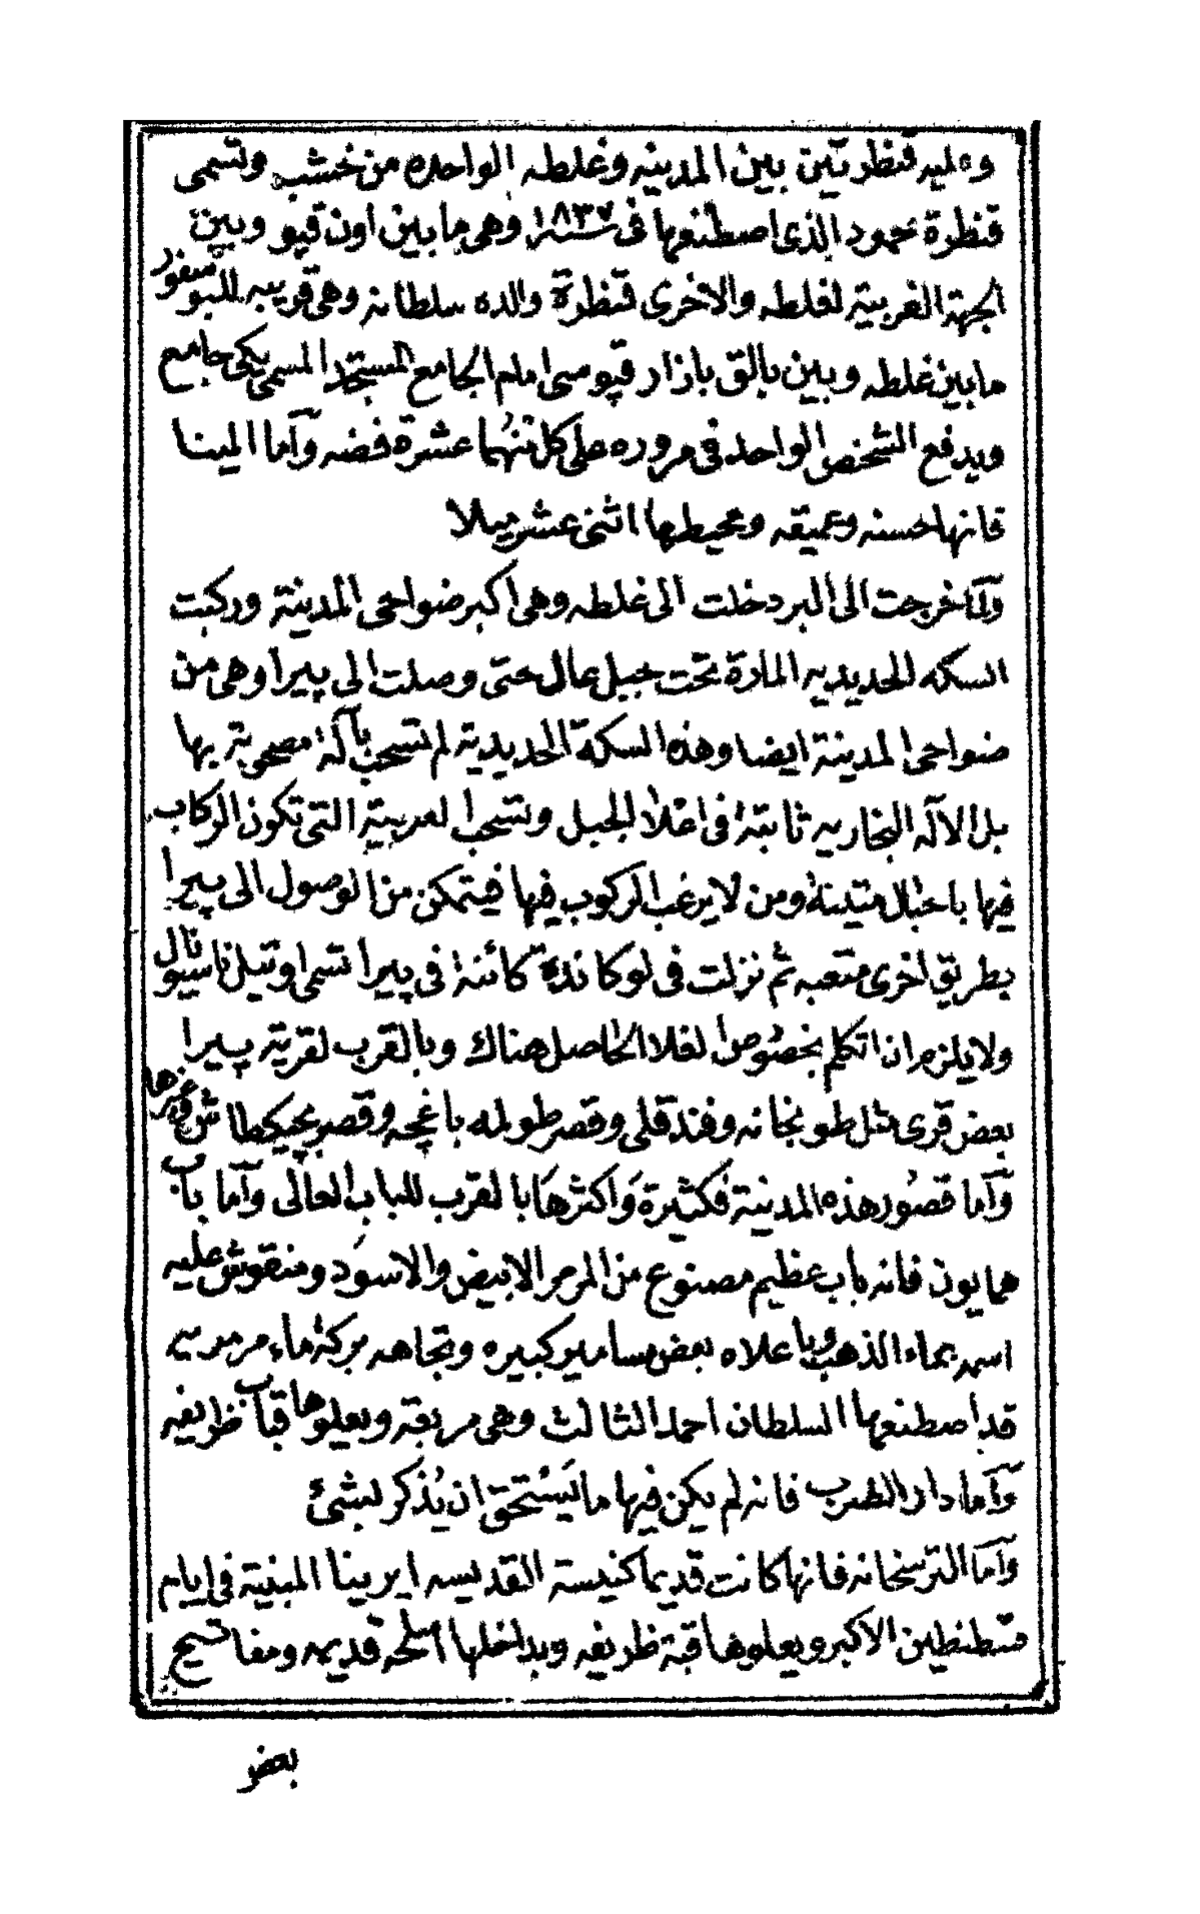 وعليه قنظرتين بين المدينه وغلطه الواحده من خشب وتسمى
قنظرة محمود الذى اصطنعها فى سنة ١٨٣٧ وهى ما بين اون قپو وبين
الجهة الغربية لغلطه والاخرى قنظرة والده سلطانه وهى قريبه للبوسفور
ما بين غلطه وبين بالق بازار قپوسى امام الجامع المستجد المسمى يكى جامع
ويدفع الشخص الواحد فى مروره على كل منهما عشرة فضه وآما المينا
فانها حسنه وعميقه ومحيطها اثنى عشر ميلا
ولمّا خرجت الى البر دخلت الى غلطه وهى اكبر ضواحى المدينة وركبت
السكه الحديديه المارة تحت جبل عال حتى وصلت الى پيرا وهى من
ضواحى المدينة ايضا وهذه السكة الحديدية لم تسحب بآلة مصحوبة بها
بل الآلة البخاريه ثابتة فى اعلا الجبل وتسحب العربية التى تكون الركاب
فيها باحبال متينة ومن لا يرغب الركوب فيها فيتمكن من الوصول الى پيرا
بطريق اخرى متعبه ثم نزلت فى لوكاندة كائنة فى پيرا تسمى اوتيل ناسيونال
ولا يلزم ان اتكلم بخصوص الغلا الحاصل هناك وبالقرب لقرية پيرا
بعض قرى مثل طوبخانه وفندقلى وقصر طولمه باغچه وقصر بچيكطاش وغيرها
وآما قصور هذه المدينة فكثيرة وَاكثرهَا بالقرب للباب العالى وآما باب
همايون فانه باب عظيم مصنوع من المرمر الابيض والاسوَد ومنقوش عليه
اسمه بماء الذهب وباعلاه بعض مسامير كبيره وتجاهه بركة ماء مرمريه
قد اصطنعها السلطان احمد الثالث وهى مربعة ويعلوها قباب ظريفه
وآما دار الضرب فانه لم يكن فيها ما يَسْتحق ان يُذكر لبشئ
وآما الترسخانه فانها كانت قديما كنيسة القديسه ايرينا المبنية فى ايام
قسطنطين الاكبر ويعلوها قبة ظريفه وبداخلها اسلحه قديمه ومفاتيح
بعض